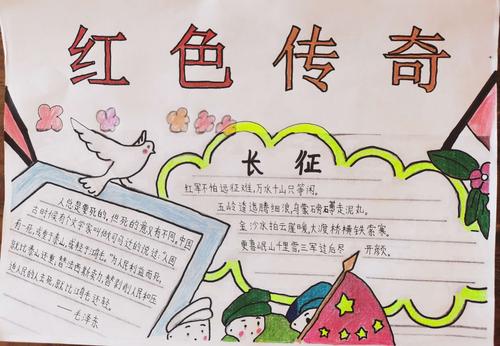 红色传奇
长征
红军不怕远征难,万水千山只等闲。
五岭逶迤腾细浪,乌蒙磅礴走泥丸。
金沙水拍云崖暖,大渡桥横铁索寒。
更喜岷山千里雪,三军过后尽 开颜。
人总是要死的,但死的意义有不同。中国
古时候有个文学家叫做司马迁的说过:人固
有一死,或重于泰山,或轻于鸿毛。为人民利益而死,
就比泰山还重;替法西斯卖力,替剥削人民和压
迫人民的人去死,就比鸿毛还轻。
——毛泽东